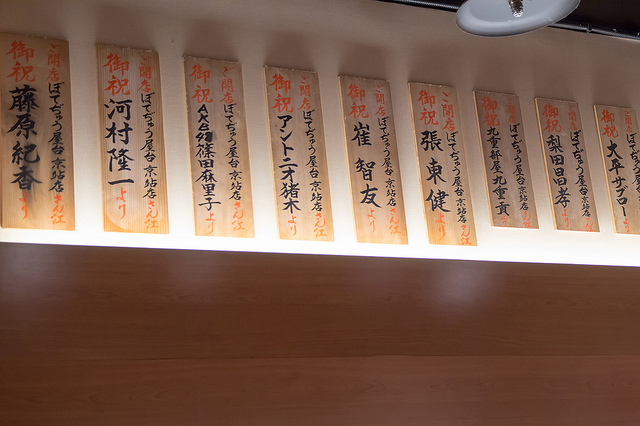 御祝 大平サブロー
ご開店 ぼてぢゅう屋台 京站店
御祝 梨田昌孝 より
ご開店 ぼてぢゅう屋台 京站店
御祝 九重部屋九重貢
ご開店 ぼてぢゅう屋台 京站店 さん江
御祝 張東健 より
ご開店 ぼてぢゅう屋台 京站店 さん江
御祝 崔智友 より
ご開店 ぼてぢゅう屋台 京站店 さん江
御祝 アントニオ猪木 より
ご開店 ぼてぢゅう屋台 京站店 さん江
御祝 AKB48篠田麻里子 より
ご開店 ぼてぢゅう屋台 京站店 さん江
御祝 河村隆一 より
ご開店 ぼてぢゅう屋台 京站店 さん江
御祝 藤原紀香 より